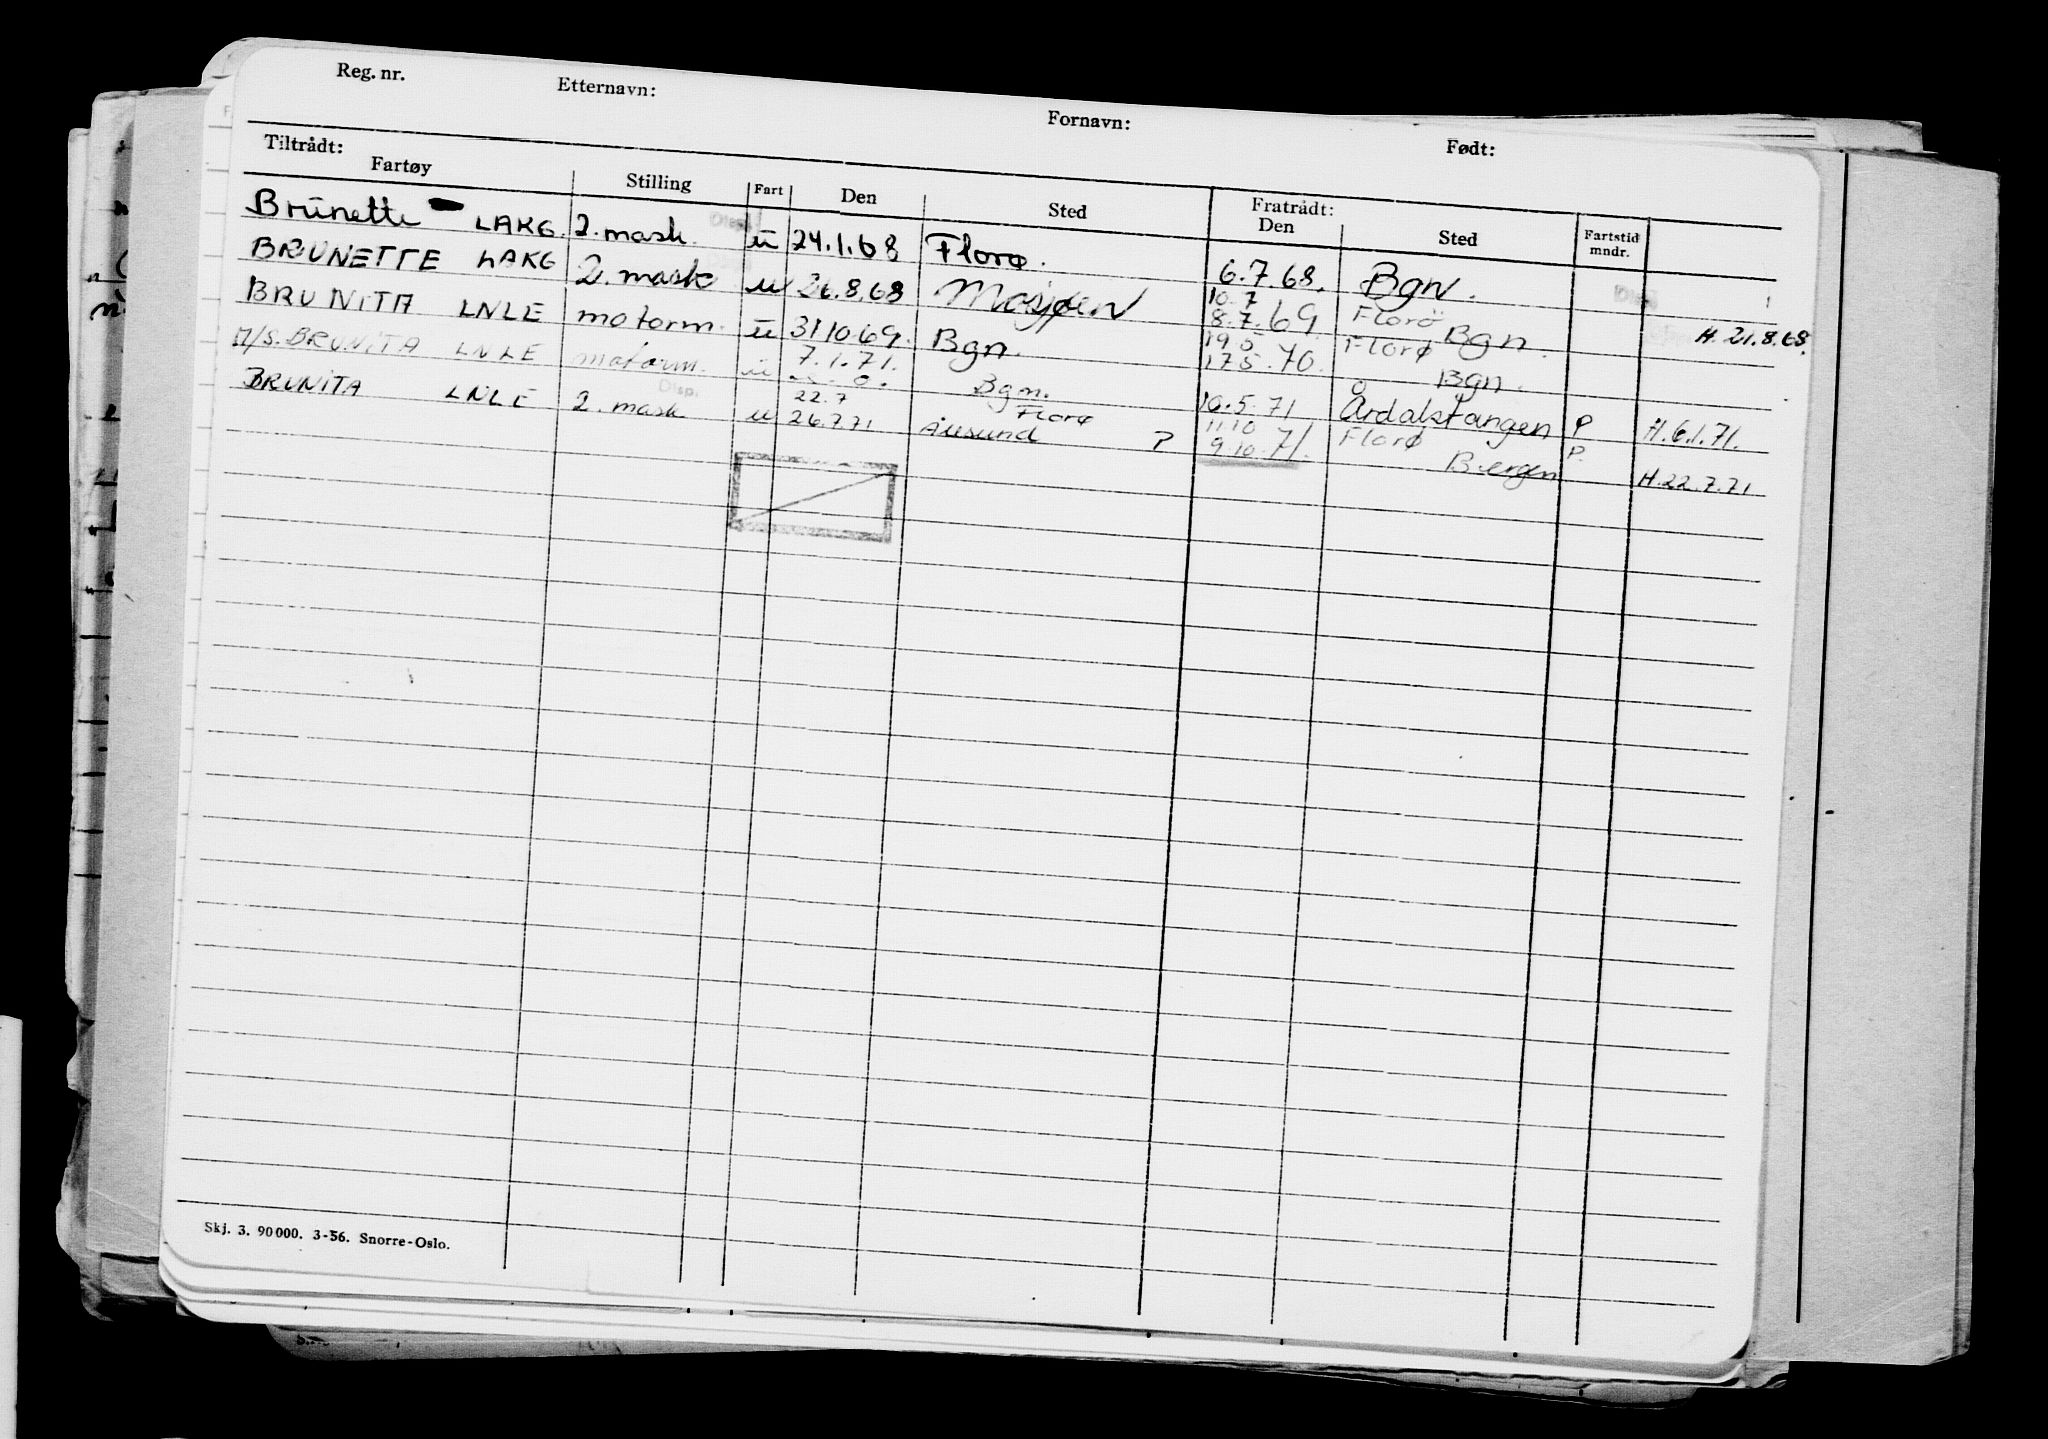 Reg. nr. Etternavn: Fornavn: Født:
Tiltrådt: Fratrådt:
Fartøy Stilling Fart Den Sted Den Sted Fartstid mndr.
Brunette LAKG. 2. mask. u 24.1.68 Florø. 6.7.68. Bgn.
BRUNETTE LAKG 2. mask u 26.8.68 Mosjøen 10.7 Florø H. 21.8.68.
8.7.69 Bgn.
BRUNITA LNLE motorm. u 31 10 69. Bgn. 19 5 Florø
17 5.70. Bgn.
M/S. BRUNITA LNLE motorm. u 7.1.71. Bgn. 10.5.71 Årdalstangen P H.6.1.71.
BRUNITA LNLE Disp. 2. mask u 22.7 Florø 11.10 Florø P.
26.7.71 Ålesund P 9.10.71. Bergen H.22.7.71
Skj. 3. 90 000. 3-56. Snorre-Oslo.